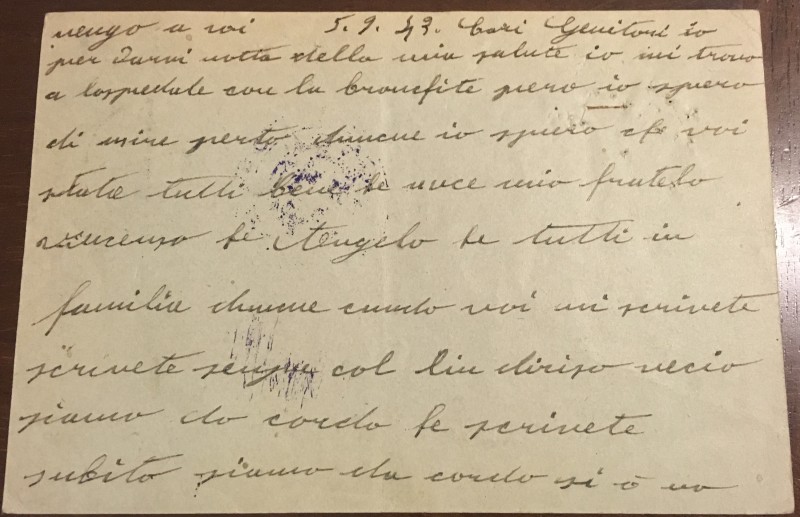 vengo a voi 5.9.43. Cari Genitori io
per darvi notta della mia salute io mi trovo
a lospedale con la broncfite pero io spero
di usire perto duncue io spiero che voi
state tutti bene le uvce mio fratelo
vincenso le Angelo le tutti in
familia duncue cuando voi mi scrivete
scrivete sempre col liu diriso vecio
siamo do cordo le scrivete
subito siamo da cordo si o no